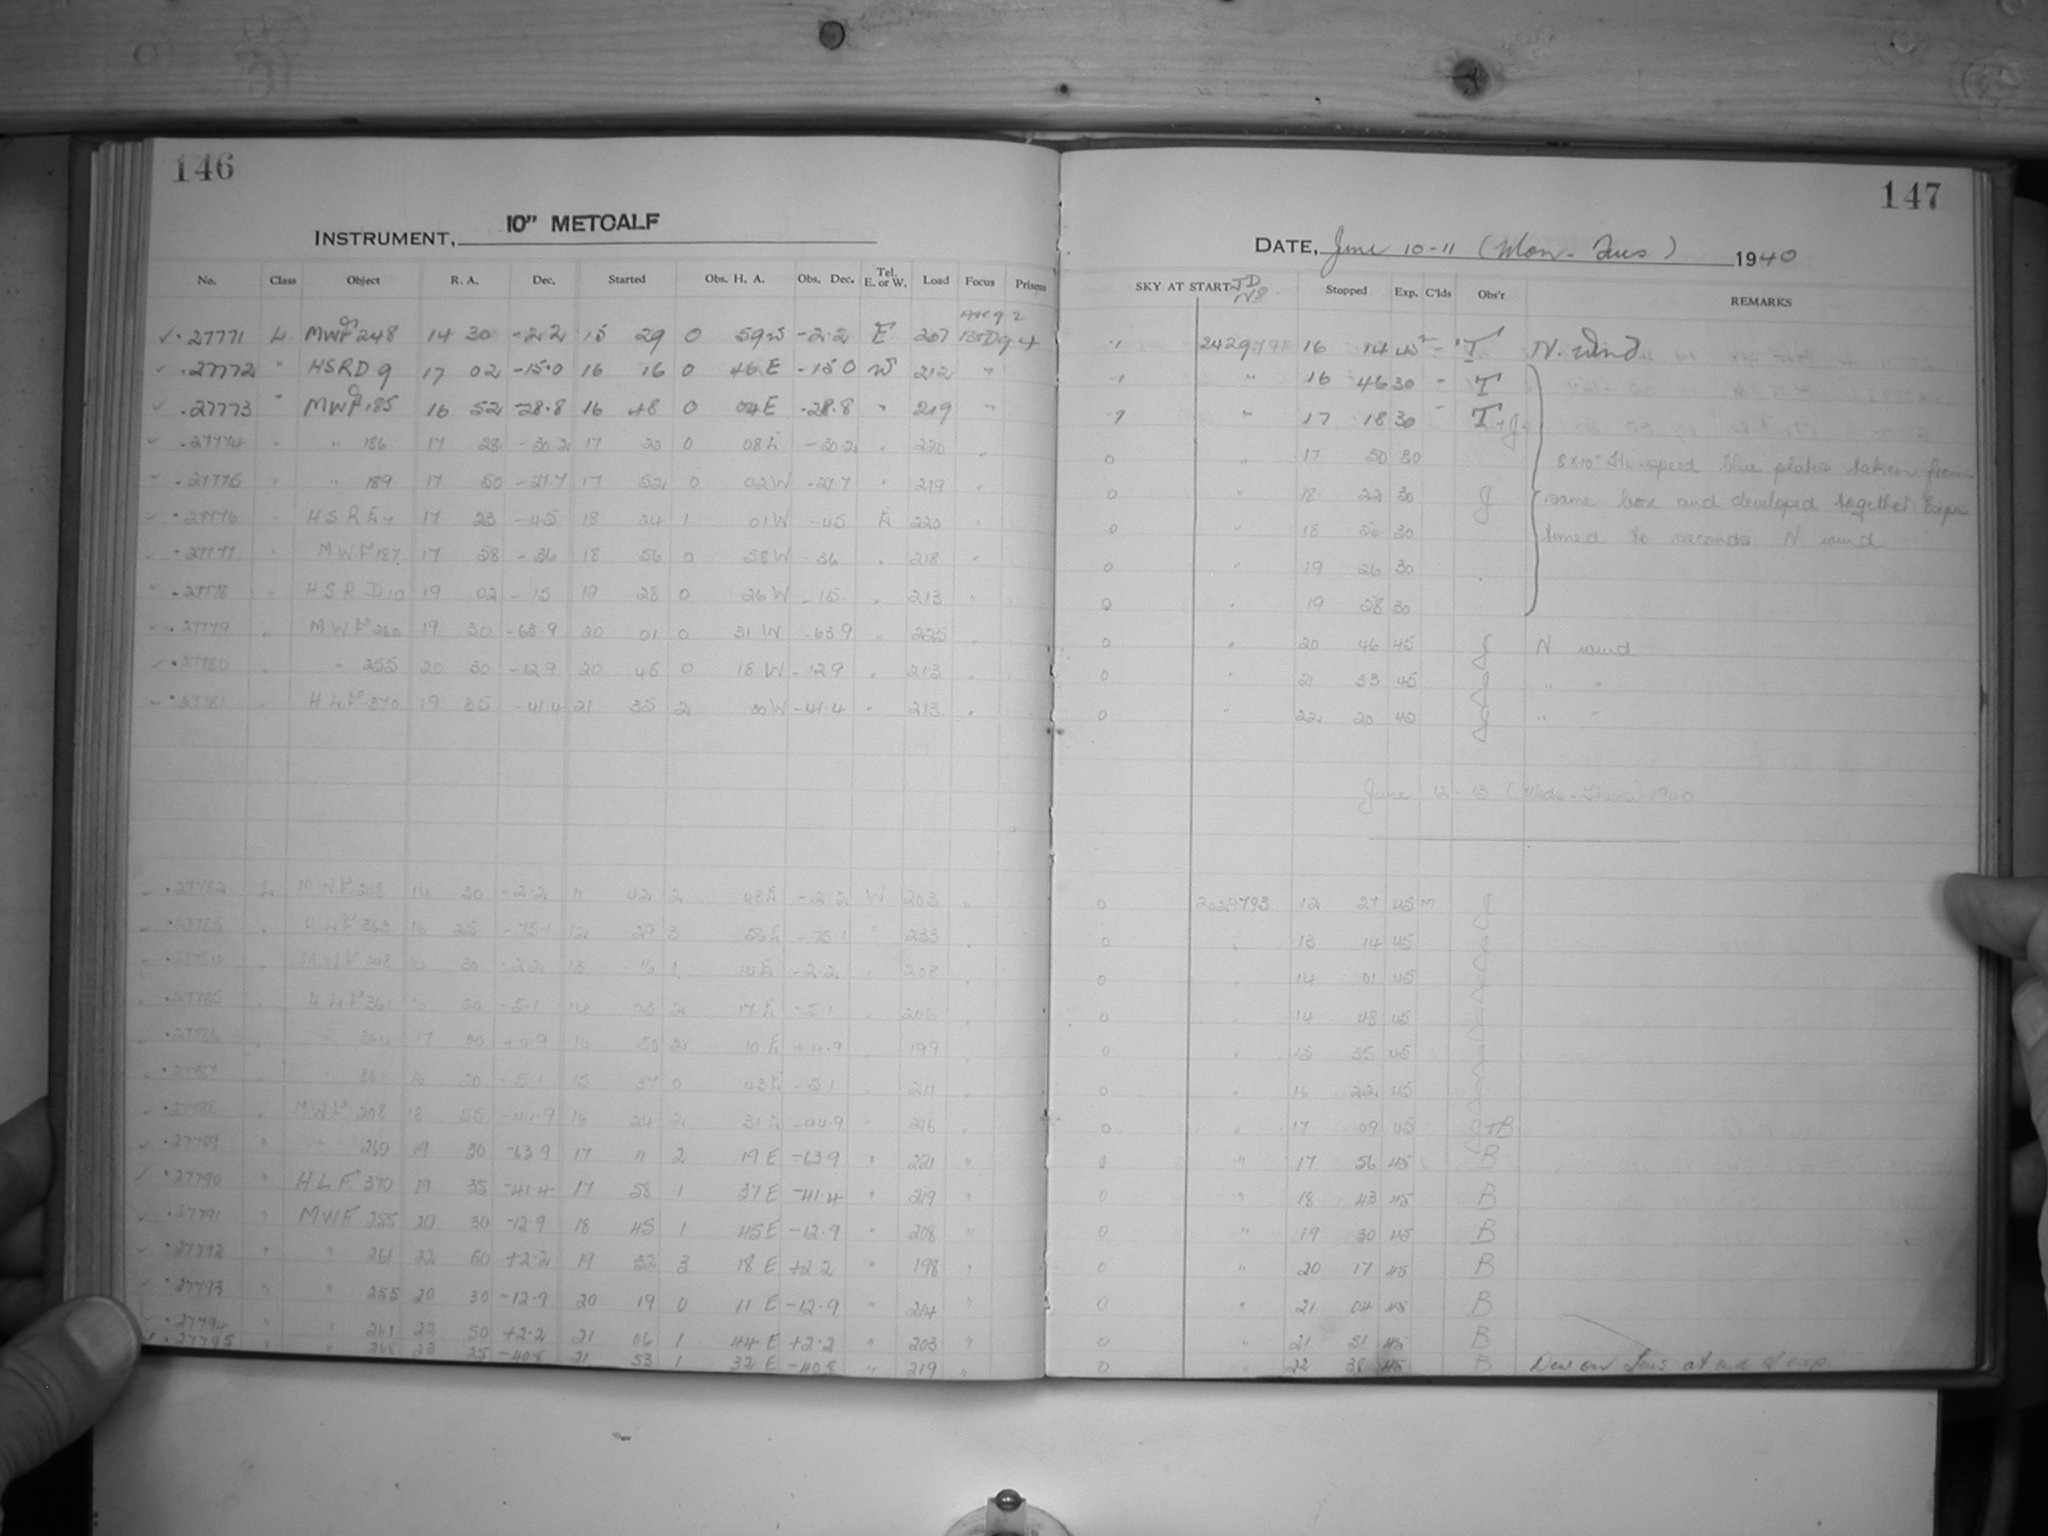 146
147
INSTRUMENT, 10" METCALF
DATE, June 10-11 (Mon. Tues) 1940
No. Class Object R. A. Dec. Started Obs. H. A. Obs. Dec. Tel. E. or W. Load Focus Prisms SKY AT START JD Stopped Exp. C'lds Obs'r REMARKS
27771 L MWF 248 14 30 -2.2 15 29 0 59W -2.2 E 207 -1 16 14 45 T N. wind
27772 " HSRD 9 17 02 -15.0 16 16 0 46E -15.0 W 212 " -1 " 16 46 30 - T
27773 " MWF 185 16 52 -28.8 16 48 0 04E -28.8 " 219 " " 17 18 30 - T+J
27774 " " 186 17 28 -30.2 17 20 0 08E -30.2 " 220 " 0 " 17 50 30 8x10" Hi-speed blue plates taken from
27775 " " 189 17 50 -27.7 17 52 0 02W -27.7 " 219 " 0 " 18 22 30 J same box and developed together
27776 " HSRE 17 23 -45 18 24 1 01W -45 E 220 " 0 " 18 30 timed to seconds N wind
27777 " MWF 187 17 58 -36 18 56 0 58W -36 " 218 " 0 " 19 26 30
27778 " HSRD 10 19 02 -15 19 28 0 26W -15 " 213 " 0 " 19 58 30
27779 " MWF 260 19 30 -63.9 20 01 0 31W -63.9 " 225 " 0 " 20 46 45 J N wind
27780 " " 255 20 30 -12.9 20 48 0 18W -12.9 " 213 " 0 " 21 33 45 J " "
27781 " HLF 370 19 35 -41.4 21 35 2 00W -41.4 " 213 " 0 " 22 20 45 J " "
June 12-13 (Weds-Thurs) 1940
27782 L MWF 14 30 -2.2 42 2 48E -2.2 W 203 " 0 2429793 12 27 45 J
27783 " HLF 363 16 25 -75.1 12 29 3 56E -75.1 " 233 " 0 " 13 14 45
27784 " MWF 248 30 -2.2 13 16 1 14E -2.2 " 208 " 0 " 14 01 45
27785 " HLF 361 16 20 -5.1 14 03 2 17E -5.1 " 206 " 0 " 14 48 45
27786 " " 364 17 00 +4.9 14 50 2 10E +4.9 " 199 " 0 " 15 35 45
27787 " " 361 16 20 -5.1 15 37 0 43E -5.1 " 211 " 0 " 16 22 45
27788 " MWF 208 18 55 -44.9 16 24 2 31E -44.9 " 216 " 0 " 17 09 45 J+B
27789 " " 260 19 30 -63.9 17 11 2 19E -63.9 " 221 " 0 " 17 56 45 B
27790 " HLF 370 19 35 -41.4 17 58 1 37E -41.4 " 219 " 0 " 18 43 45 B
27791 " MWF 255 20 30 -12.9 18 45 1 45E -12.9 " 208 " 0 " 19 30 45 B
27792 " " 261 22 50 +2.2 19 32 3 18E +2.2 " 198 " 0 " 20 17 45 B
27793 " " 255 20 30 -12.9 20 19 0 11E -12.9 " 214 " 0 " 21 04 45 B
27794 " " 261 22 50 +2.2 21 06 1 44E +2.2 " 203 " 0 " 21 51 45 B
27795 " " 268 23 25 -40.8 21 53 1 32E -40.8 " 219 " 0 " 22 38 45 B Dew on lens at end of exp.